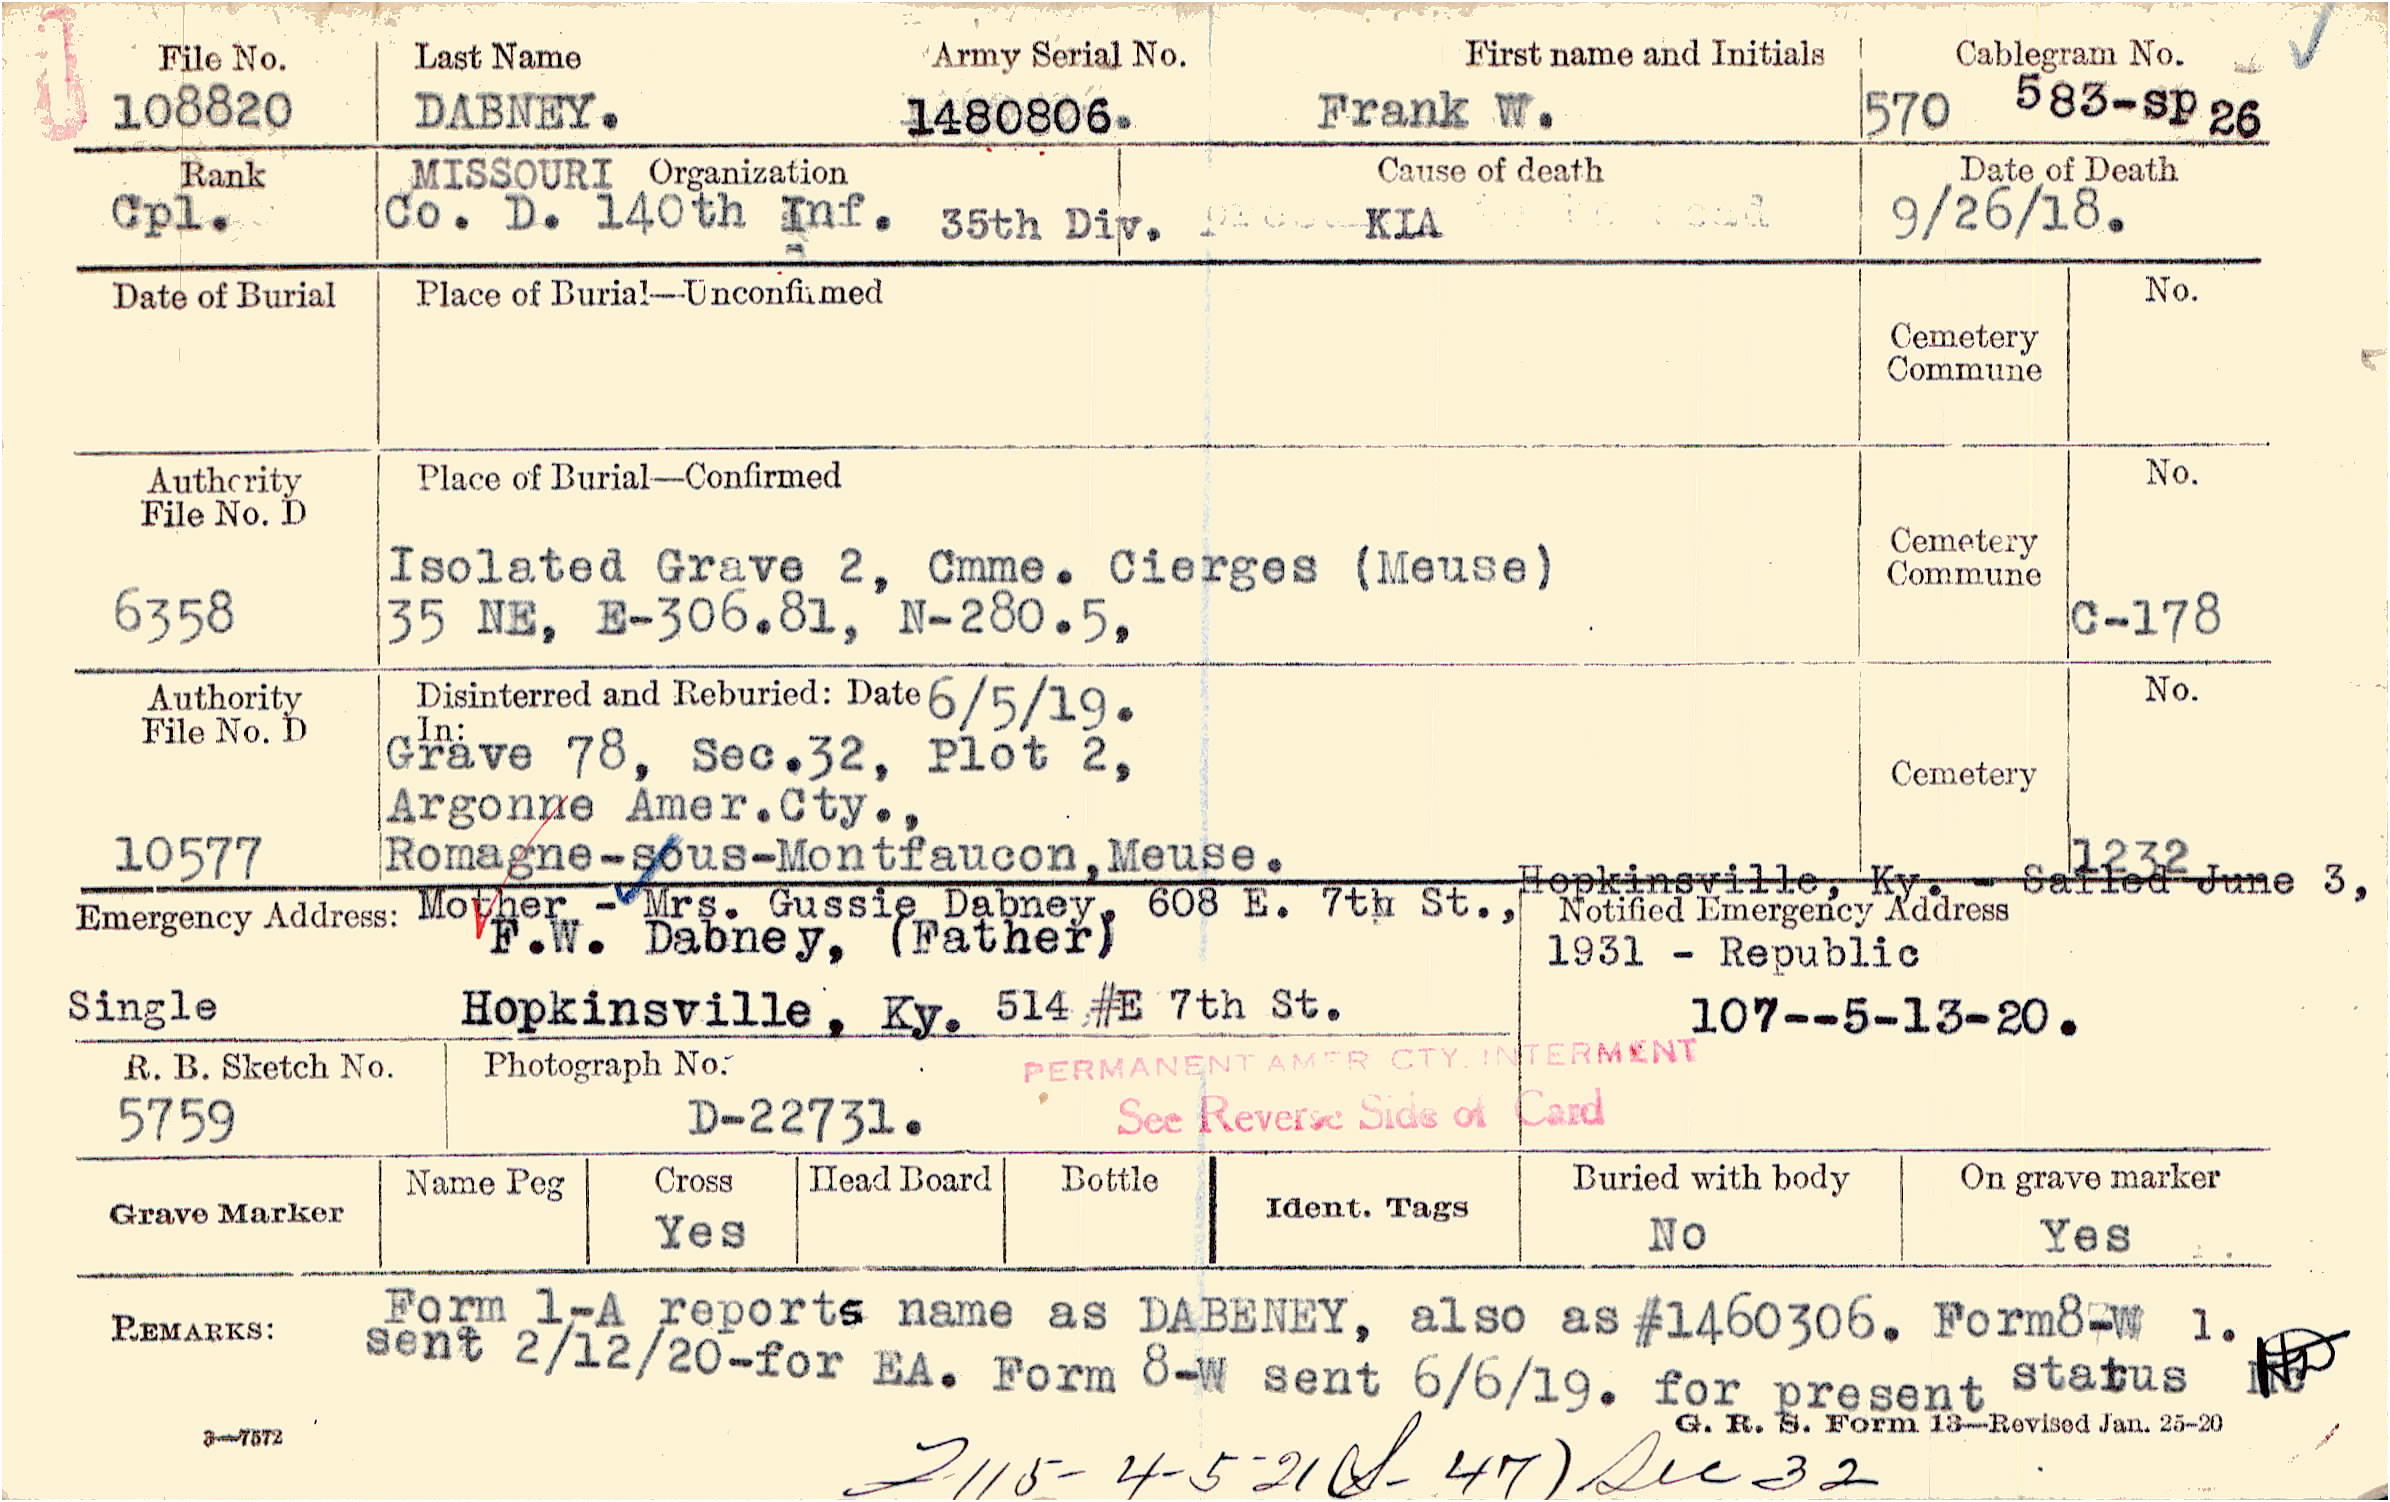 File No. Last Name Army Serial No. First name and Initials Cablegram No.
108820 DABNEY. 1480806. Frank W. 570 583-sp 26
Rank MISSOURI Organization Cause of death Date of Death
Cpl. Co. D. 140th Inf. 35th Div. KIA 9/26/18.
Date of Burial Place of Burial—Unconfirmed No.
Cemetery
Commune
Authority Place of Burial—Confirmed No.
File No. D
Cemetery
Isolated Grave 2, Cmme. Cierges (Meuse) Commune
6358 35 NE, E-306.81, N-280.5, C-178
Authority Disinterred and Reburied: Date 6/5/19. No.
File No. D In:
Grave 78, Sec.32, Plot 2,
Cemetery
Argonne Amer.Cty.,
10577 Romagne-sous-Montfaucon,Meuse. 1232
Hopkinsville, Ky. - Sailed June 3,
Emergency Address: Mother - Mrs. Gussie Dabney, 608 E. 7th St., Notified Emergency Address
F.W. Dabney, (Father) 1931 - Republic
Single Hopkinsville, Ky. 514 #E 7th St. 107--5-13-20.
R. B. Sketch No. Photograph No. PERMANENT AMER CTY. INTERMENT
5759 D-22731. See Reverse Side of Card
Grave Marker Name Peg Cross Head Board Bottle Ident. Tags Buried with body On grave marker
Yes No Yes
REMARKS: Form 1-A reports name as DABENEY, also as #1460306. Form8-W 1.
sent 2/12/20-for EA. Form 8-W sent 6/6/19. for present status
3—7572 G. R. S. Form 13—Revised Jan. 25-20
115- 4-5-21 (S- 47) Sec 32